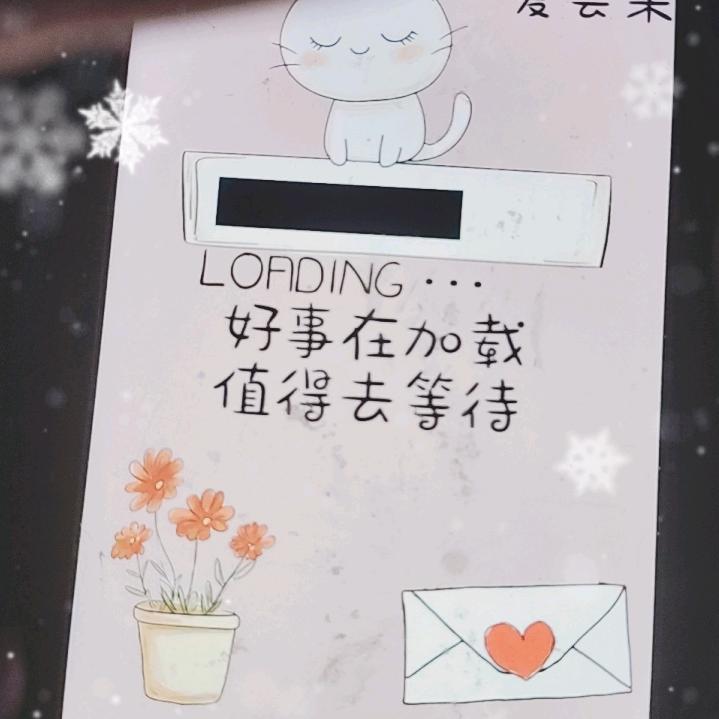 LOADING···
好事在加载
值得去等待